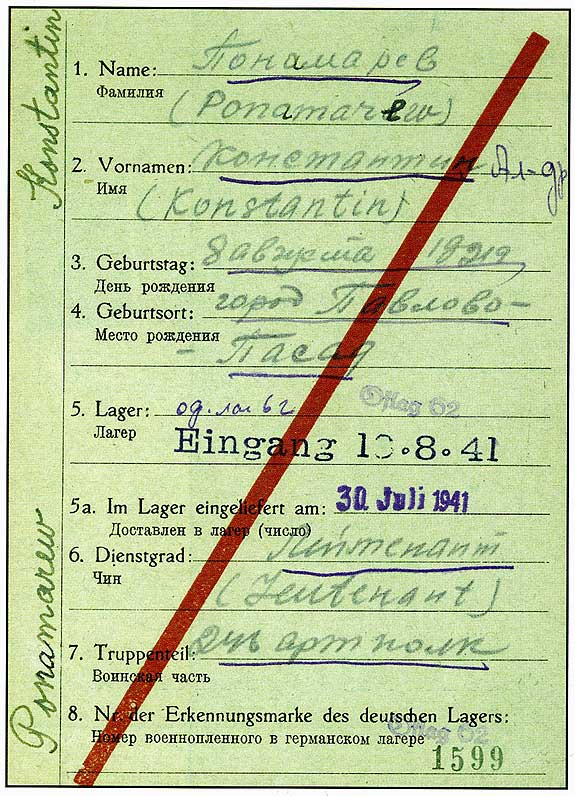 Konstantin
Ponamarew
1. Name: Понамарев
Фамилия
(Ponamarew)
2. Vornamen: Константин Ал-др
Имя
(Konstantin)
3. Geburtstag: 8 августа 1921
День рождения
4. Geburtsort: город Павлово-
Место рождения
- Пасад
5. Lager: Oflag 62
Лагер
Eingang 10.8.41
5a. Im Lager eingeliefert am: 30. Juli 1941
Доставлен в лагер (число)
6. Dienstgrad: Лейтенант
Чин
(Leutenant)
7. Truppenteil: арт полк
Воинская часть
8. Nr. der Erkennungsmarke des deutschen Lagers:
Номер военнопленного в германском лагере Oflag 62
1599